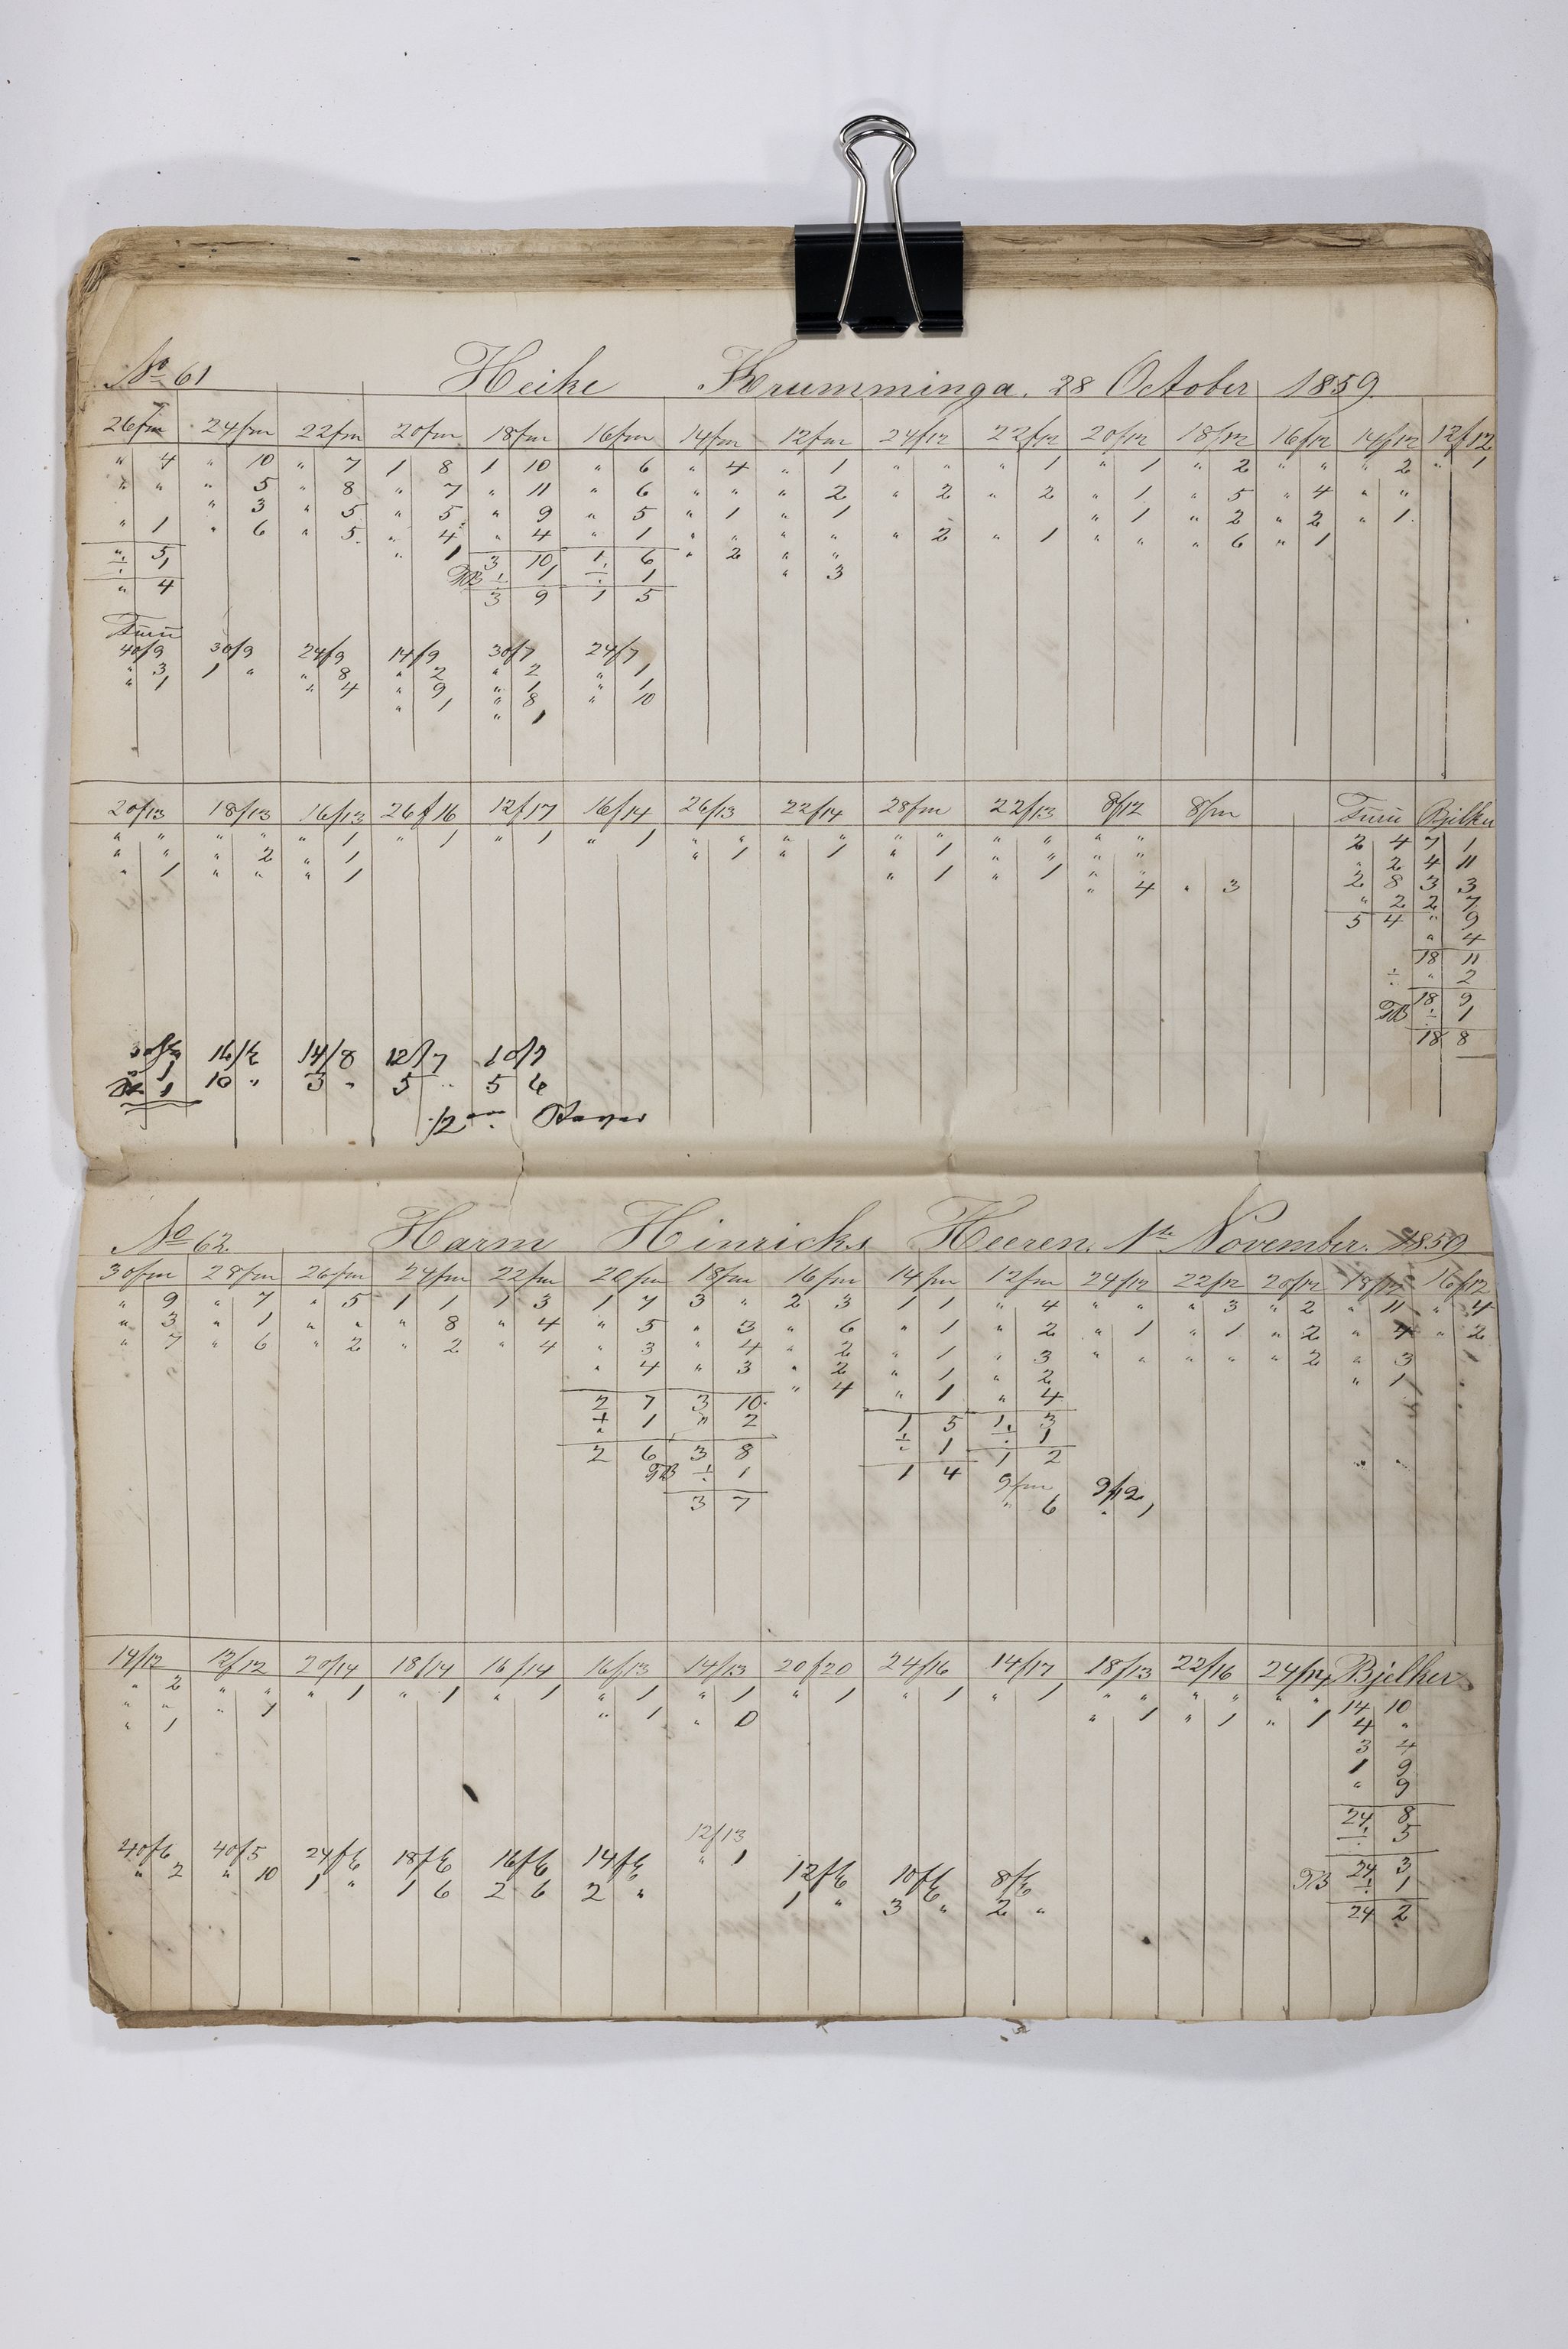 No 61 Heike Krumminga. 28 October 1859.
26/fm 24/fm 22/fm 20/fm 18/fm 16/fm 14/fm 12/fm 24/12 22/12 20/12 18/12 16/12 14/12 12/12
" 4 " 10 " 7 1 8 1 10 " 6 " 4 " 1 " " " 1 " 1 " 2 " " " 2 " 1
" " " 5 " 8 " 7 " 11 " 6 " " " 2 " 2 " 2 " 1 " 5 " 4 " "
" 3 " 5 " 5 " 9 " 5 " 1 " 1 " 1 " 2 " 2 " 1
" 1 " 6 " 5 " 4 " 4 " 1 " " " " " 2 " 1 " " " 6 " 1
" 5 " 1 3 10 1 6 " 2 " "
÷ 1 ÷ 1 ÷ 1 " 3
" 4 3 9 1 5
40/9 30/9 24/9 14/9 30/7 24/7
" 3 1 " " 8 " 2 " 2 " 1
" 1 " 4 " 9 " 1 " 1
" 1 " 8 " 10
" 1
20/13 18/13 16/13 26/16 12/17 16/14 26/13 22/14 28/fm 22/13 8/12 8/fm Bjelker
" " " " " 1 " 1 " 1 " 1 " " " " " " " " " " 2 4 7 1
" " " 2 " 1 " 1 " 1 " 1 " " " " " 2 4 11
" 1 " " " 1 " 1 " 1 " " 2 8 3 3
" 4 " 3 " 2 2 7
5 4 " 9
" 4
18 11
÷ " 2
18 9
÷ 1
18 8
14/8 12/7 10/7
1 10 " 3 " 5 " 5 6
No 62. Harm Hinricks Heeren. 1te November. 1859
30/fm 28/fm 26/fm 24/fm 22/fm 20/fm 18/fm 16/fm 14/fm 12/fm 24/12 22/12 20/12 18/12 16/12
" 9 " 7 " 5 1 1 1 3 1 7 3 " 2 3 1 1 " 4 " " " 3 " 2 " 11 " 4
" 3 " 1 " " " 8 " 4 " 5 " 3 " 6 " 1 " 2 " 1 " 1 " 2 " 4 " 2
" 7 " 6 " 2 " 2 " 4 " 3 " 4 " 2 " 1 " 3 " " " " " 2 " 3
" 4 " 3 " 2 " 1 " 2 " 1
" 4 " 1 " 4
2 7 3 10
÷ 1 " 2 1 5 1 3
÷ 1 ÷ 1
2 6 3 8 1 4 1 2
÷ 1
3 7
9/fm 9/12
" 6 " 1
14/12 12/12 20/14 18/14 16/14 16/13 14/13 20/20 24/16 14/17 18/13 22/16 24/14 Bjelker
" 2 " " " 1 " 1 " 1 " 1 " 1 " 1 " 1 " 1 " " " " " " 14 10
" " " 1 " 1 " 0 " 1 " 1 " 1 4 "
" 1 3 4
1 9
" 9
24 8
÷ 5
24 3
÷ 1
24 2
12/13
" 1
40/6 40/5 24/6 18/6 16/6 14/6 12/6 10/6 8/6
" 2 " 10 1 " 1 6 2 6 2 " 1 " 3 " 2 "